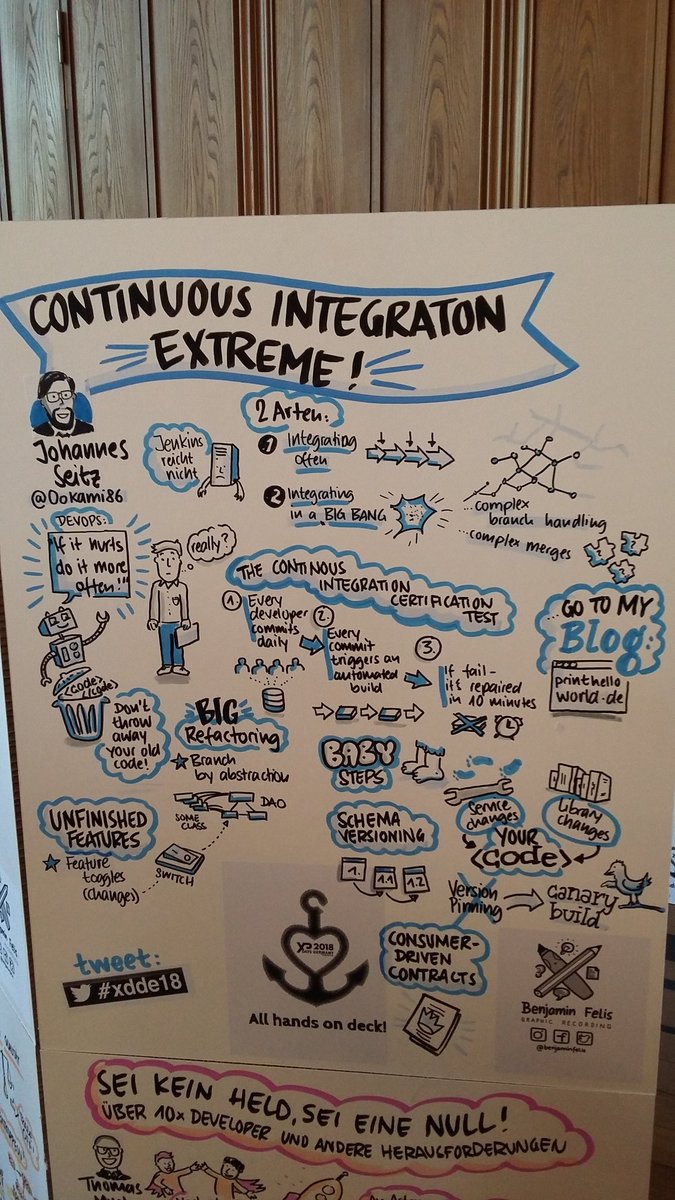 CONTINUOUS INTEGRATON
EXTREME!
Johannes
Seitz
@Ookami86
Jenkins
reicht
nicht
2 Arten:
1 Integrating
often
2 Integrating
in a BIG BANG
complex
branch handling
complex merges
DEVOPS:
"If it hurts
do it more
often!"
really?
THE CONTINOUS
INTEGRATION
CERTIFICATION
TEST
1. Every
developer
commits
daily
2.
Every
commit
triggers an
automated
build
3.
If fail-
it's repaired
in 10 minutes
GO TO MY
Blog:
printhello
world.de
<code/code>
Don't
throw
away
your old
code!
BIG
Refactoring
Branch
by abstraction
SOME
CLASS
DAO
BABY
STEPS
UNFINISHED
FEATURES
Feature
toggles
(changes)
SWITCH
SCHEMA
VERSIONING
1.
1.1
1.2
Service
changes
Library
changes
YOUR
<code>
Version
Pinning
canary
build
CONSUMER-
DRIVEN
CONTRACTS
tweet:
#xdde18
XP 2018
DAYS GERMANY
All hands on deck!
Benjamin Felis
GRAPHIC RECORDING
@benjaminfelis
SEI KEIN HELD, SEI EINE NULL!
ÜBER 10x DEVELOPER UND ANDERE HERAUSFORDERUNGEN
Thomas